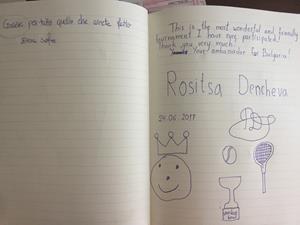 Grazie per tutto quello che avete fatto
This is the most wonderful and friendly
tournament I have ever participated!
Thank you very much!
Your ambassador for Bulgaria!
Rositsa Dencheva
24.06.2017